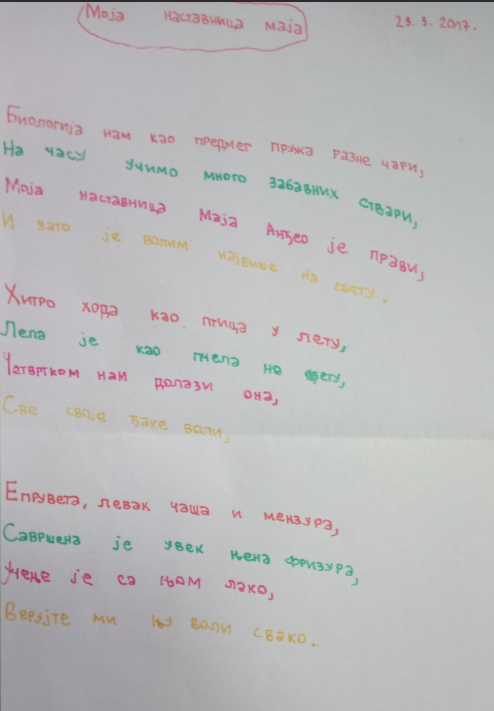 Моја наставница маја
29. 3. 2017.
Биологија нам као предмет пружа разне чари,
На часу учимо много забавних ствари,
Моја наставница Маја Анђео је прави,
И зато је волим највише на свету.
Хитро хода као птица у лету,
Лепа је као пчела на цвету,
Четвртком нам долази она,
Све своје ђаке воли,
Епрувета, левак чаша и мензура,
Савршена је увек њена фризура,
Учење је са њом лако,
Верујте ми њу воли свако.